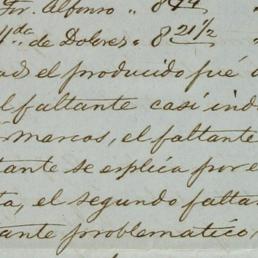 Fr. Alfonso „ 8
de Dolores „ 8 21 1/2
el producido fué
el faltante casi ind
Marcos, el faltante
tante se esplica por e
ta, el segundo falta
ante problematico,